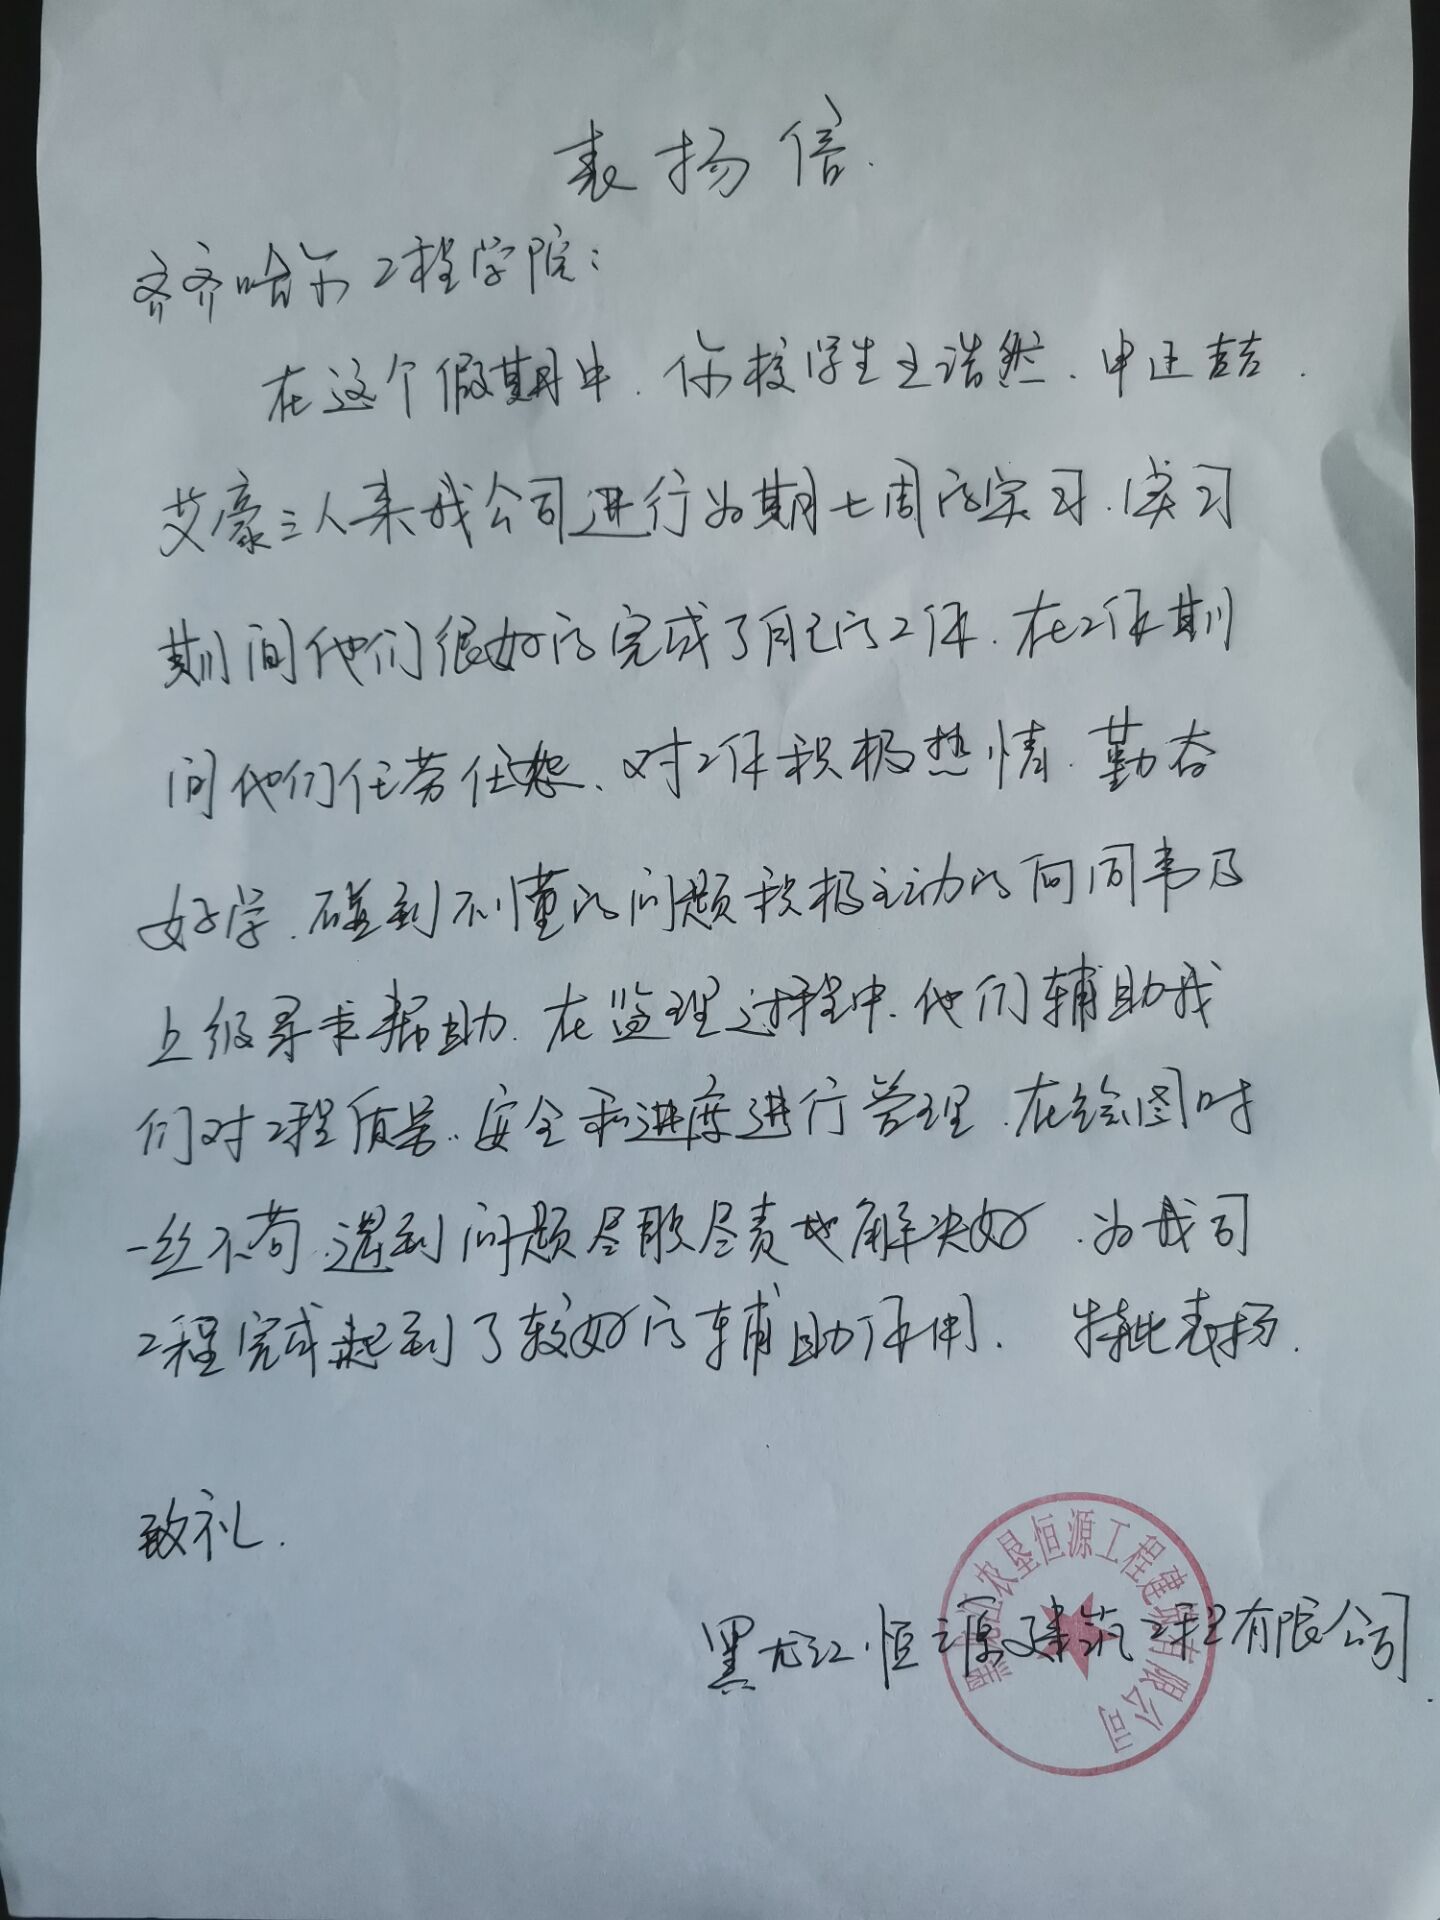 表扬信.
齐齐哈尔工程学院:
在这个假期中.你校学生王浩然.申正喆.
艾豪三人来我公司进行为期七周的实习.实习
期间他们很好的完成了自己的工作.在工作期
间他们任劳任怨、对工作积极热情.勤奋
好学.碰到不懂的问题积极主动的向同事及
上级寻求帮助.在监理过程中.他们辅助我
们对工程质量.安全和进度进行管理.在绘图时
一丝不苟.遇到问题尽职尽责地解决好.为我司
工程完成起到了较好的辅助作用. 特此表扬.
致礼.
黑龙江农垦恒源工程建筑有限公司
黑龙江恒源建筑工程有限公司.